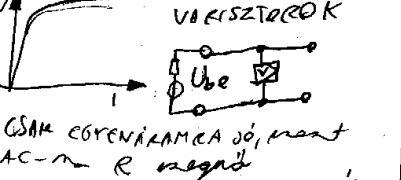 VARISZTEROK
Ube
I
CSAK EGYENÁRAMRA JÓ, mert
AC-n R megnő